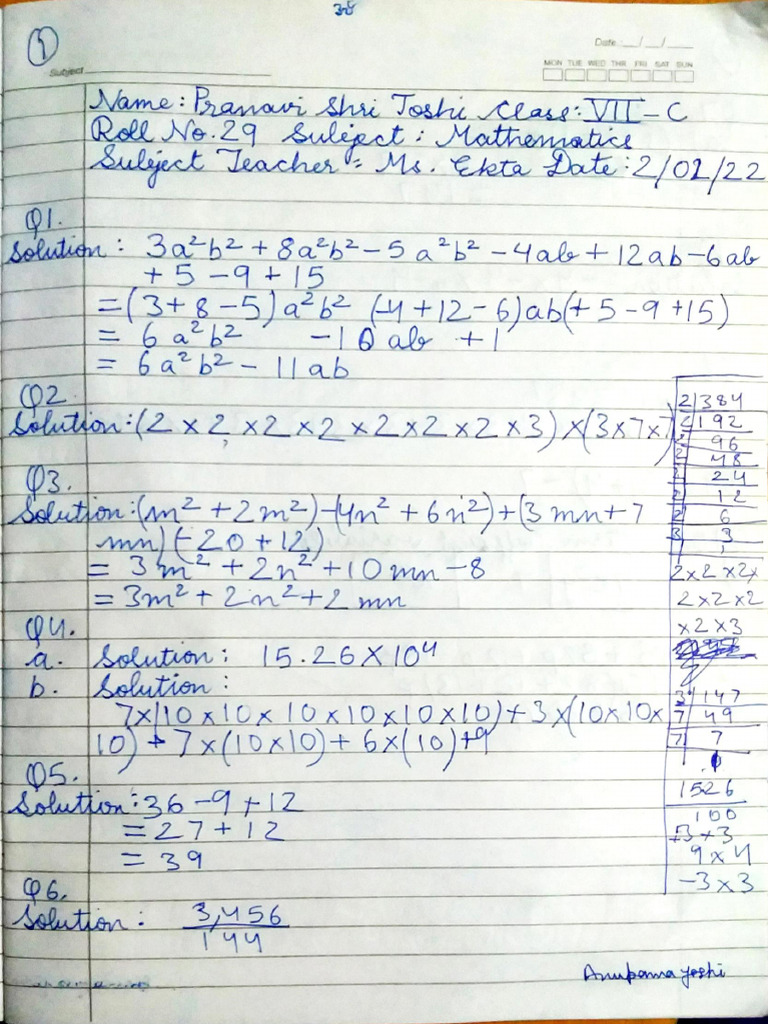 38
1
Date __/__/__
Subject
MON TUE WED THR FRI SAT SUN
Name: Pranavi Shri Joshi Class: VII-C
Roll No. 29 Subject: Mathematics
Subject Teacher: Ms. Ekta Date: 2/02/22
Q1.
Solution: 3a²b² + 8a²b² - 5a²b² - 4ab + 12ab - 6ab
+ 5 - 9 + 15
= (3 + 8 - 5) a²b² (-4 + 12 - 6) ab (+ 5 - 9 + 15)
= 6a²b² - 10 ab + 1
= 6a²b² - 11ab
Q2
Solution: (2 × 2 × 2 × 2 × 2 × 2 × 2 × 3) × (3 × 7 × 7)
Q3.
Solution: (m² + 2m²) - (4n² + 6n²) + (3mn + 7
mn) (-20 + 12)
= 3m² + 2n² + 10mn - 8
= 3m² + 2n² + 2mn
Q4.
a. Solution: 15.26 × 10⁴
b. Solution:
7×(10 × 10 × 10 × 10 × 10 × 10) + 3 × (10 × 10 ×
10) + 7 × (10 × 10) + 6 × (10) + 9
Q5.
Solution: 36 - 9 + 12
= 27 + 12
= 39
Q6.
Solution: 3,456
144
2 384
2 192
2 96
2 48
2 24
2 12
2 6
3 3
1
2×2×2×
2×2×2
×2×3
3 147
7 49
7 7
1
1526
100
+3×3
9×4
-3×3
Anupama Joshi